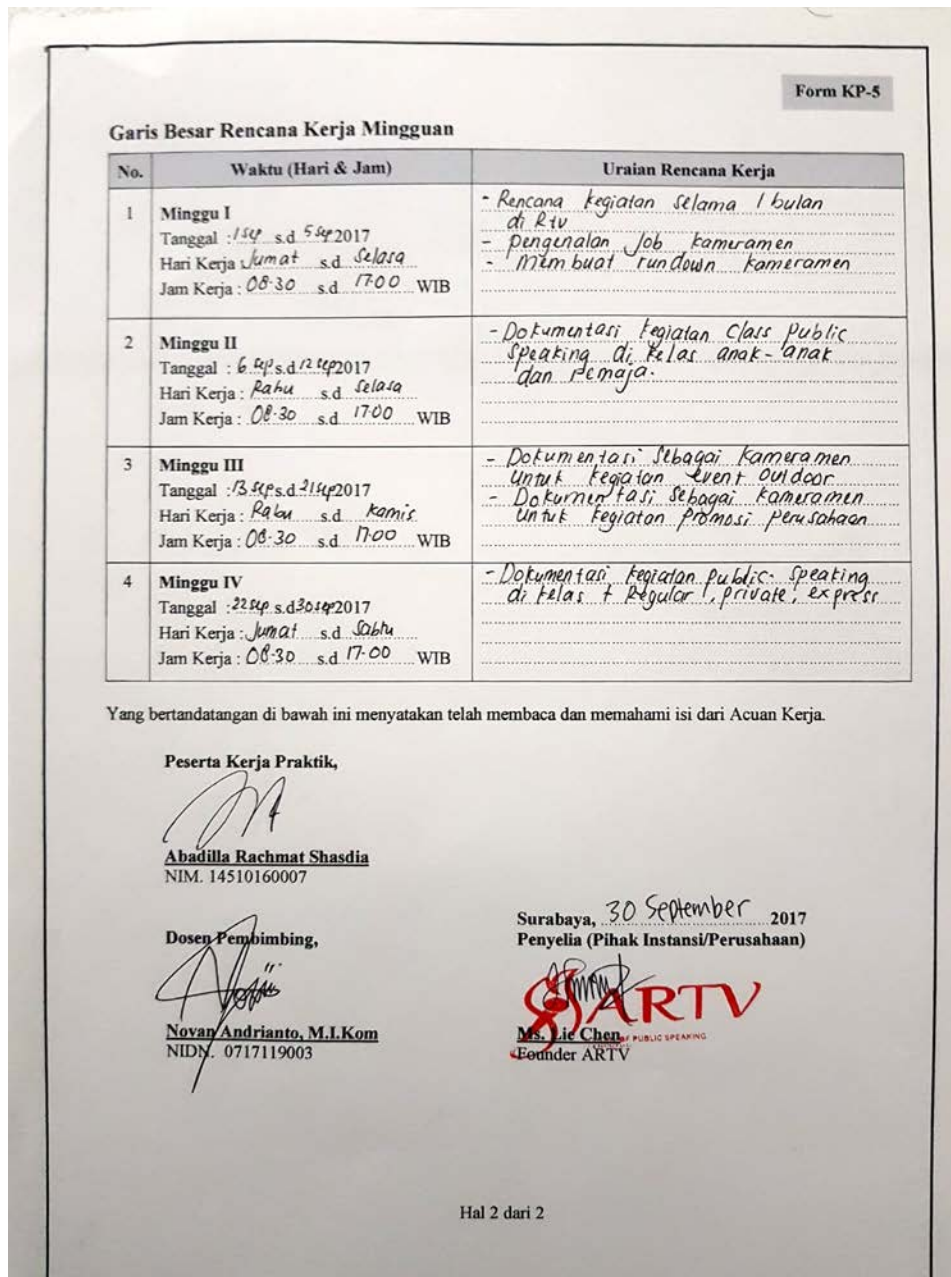 Form KP-5
Garis Besar Rencana Kerja Mingguan
No. Waktu (Hari & Jam) Uraian Rencana Kerja
1 Minggu I
Tanggal : 1 sep s.d 5 sep 2017
Hari Kerja : Jumat s.d Selasa
Jam Kerja : 08.30 s.d 17.00 WIB
- Rencana kegiatan selama 1 bulan
di Rtv
- pengenalan Job kameramen
- Membuat rundown kameramen
2 Minggu II
Tanggal : 6 sep s.d 12 sep 2017
Hari Kerja : Rabu s.d Selasa
Jam Kerja : 08.30 s.d 17.00 WIB
- Dokumentasi kegiatan Class Public
Speaking di kelas anak-anak
dan Remaja.
3 Minggu III
Tanggal : 13 sep s.d 21 sep 2017
Hari Kerja : Rabu s.d kamis
Jam Kerja : 08.30 s.d 17.00 WIB
- Dokumentasi Sebagai kameramen
untuk kegiatan event outdoor
- Dokumentasi Sebagai kameramen
untuk kegiatan promosi perusahaan
4 Minggu IV
Tanggal : 22 sep s.d 30 sep 2017
Hari Kerja : Jumat s.d Sabtu
Jam Kerja : 08.30 s.d 17.00 WIB
- Dokumentasi kegiatan Public Speaking
di kelas + Regular, private, express
Yang bertandatangan di bawah ini menyatakan telah membaca dan memahami isi dari Acuan Kerja.
Peserta Kerja Praktik,
Abadilla Rachmat Shasdia
NIM. 14510160007
Surabaya, 30 September 2017
Dosen Pembimbing,
Penyelia (Pihak Instansi/Perusahaan)
ARTV
OF PUBLIC SPEAKING
Novan Andrianto, M.I.Kom
NIDN. 0717119003
Ms. Lie Chen
Founder ARTV
Hal 2 dari 2